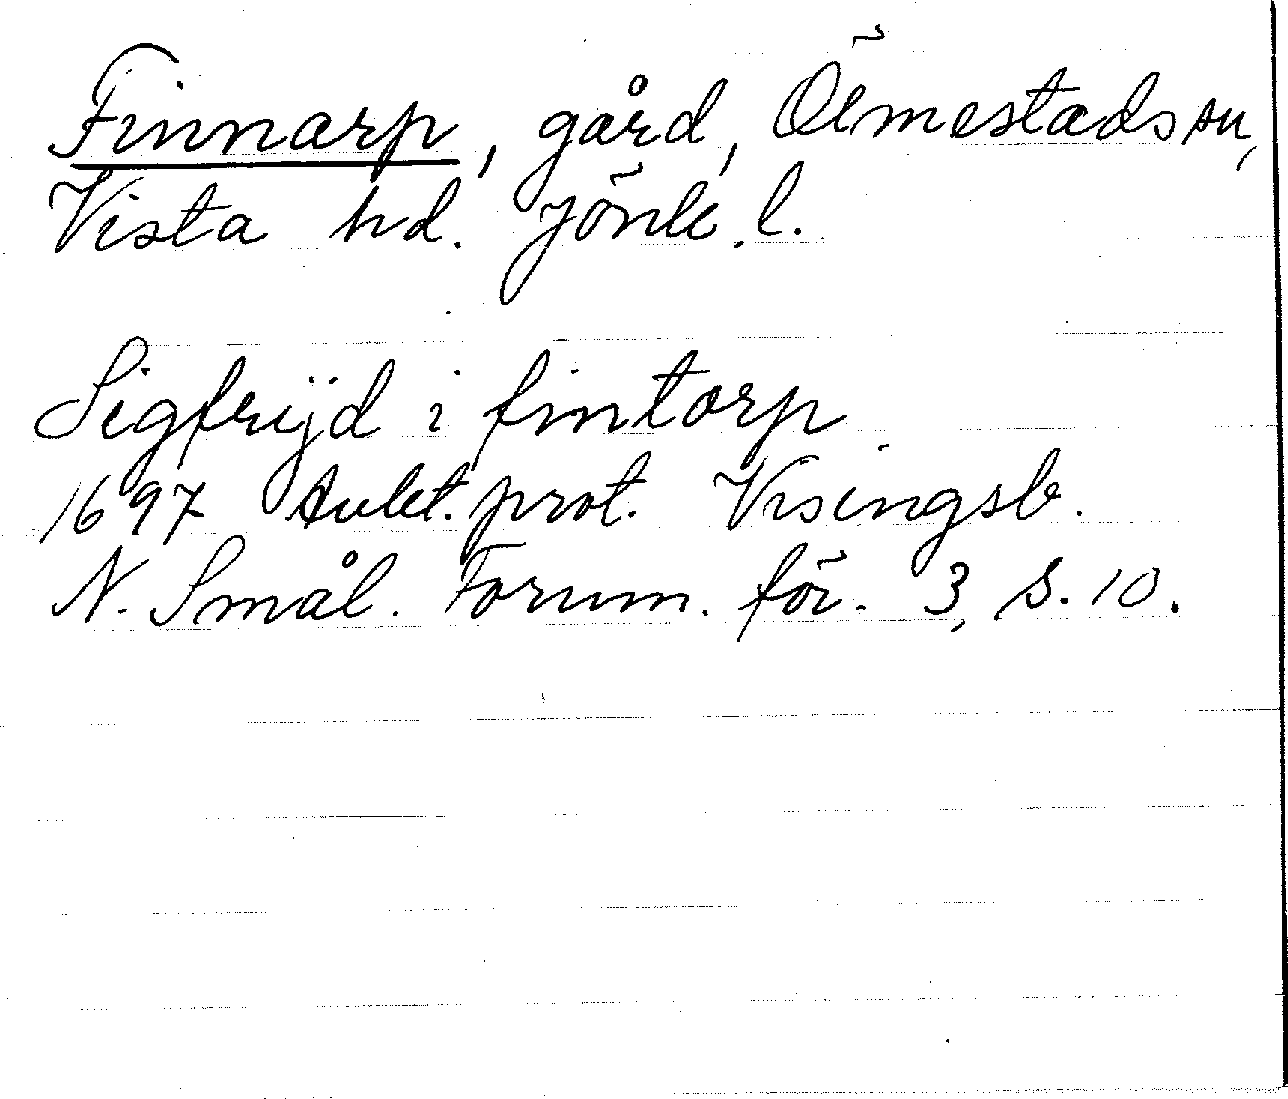 Finnarp, gård, Ölmestads sn,
Vista hd. Jönk. l.
Sigfrijd i fintorp
1697 prot. Visingsb.
N. Smål. Fornm. för. 3, S. 10.